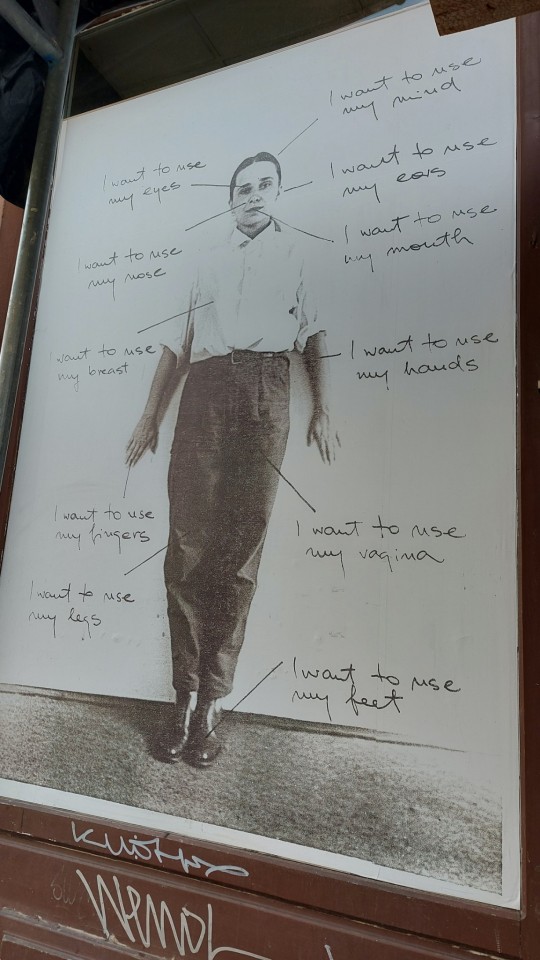 I want to use
my mind
I want to use
my eyes
I want to use
my ears
I want to use
my nose
I want to use
my mouth
I want to use
my breast
I want to use
my hands
I want to use
my fingers
I want to use
my vagina
I want to use
my legs
I want to use
my feet